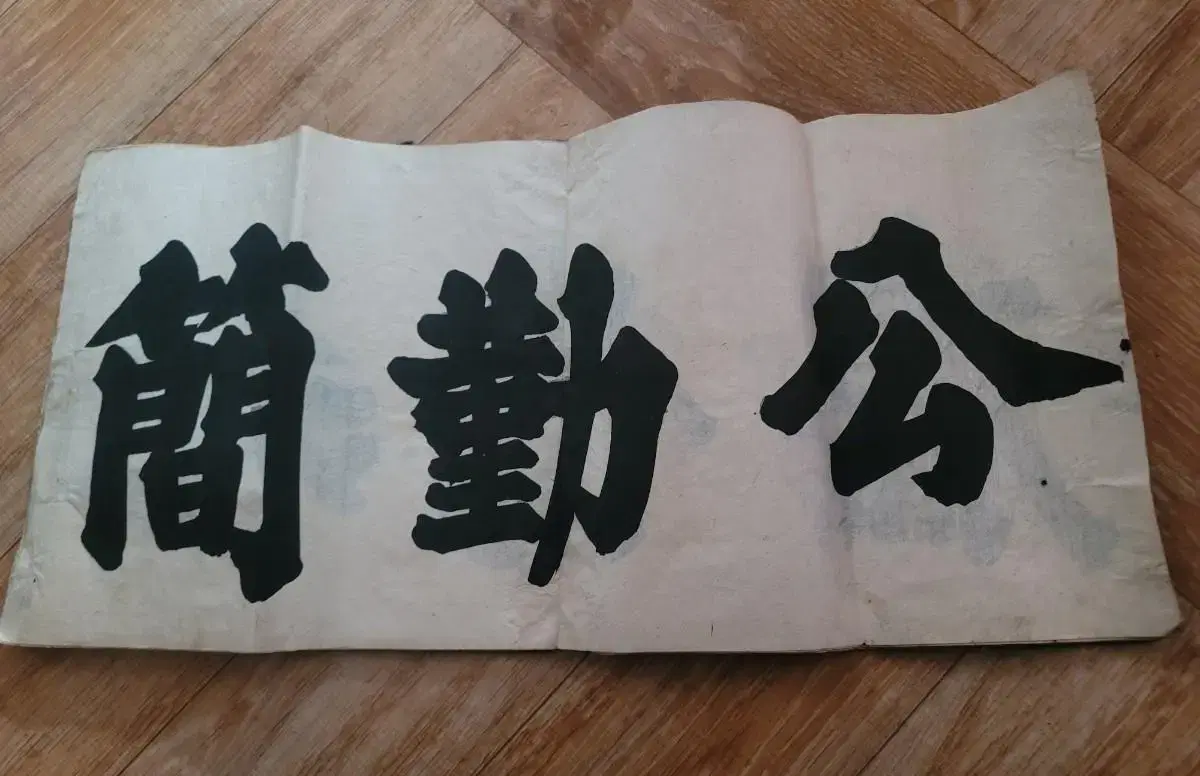 公勤簡